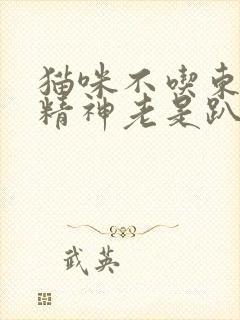 猫咪不喫東
精神老是趴
武英